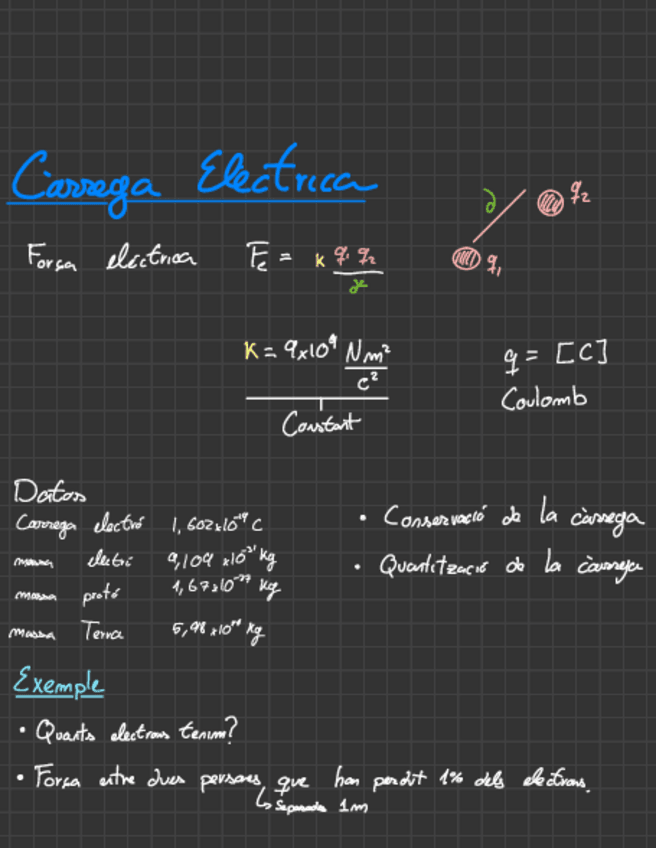 Carrega Electrica
∂ q₂
q₁
Forsa electrica Fe = K q₁ q₂ / r
K = 9x10⁹ Nm² / c²
Constant
q = [C]
Coulomb
Datos
Carrega electró 1,602x10⁻¹⁹ C
massa electró 9,109 x10⁻³¹ kg
massa protó 1,67x10⁻²⁷ kg
massa Terra 5,98 x10²⁴ kg
• Conservació de la càrrega
• Quantització de la càrrega
Exemple
• Quants electrons tenim?
• Forsa entre dues persones que han perdut 1% dels electrons.
↳ Separades 1m